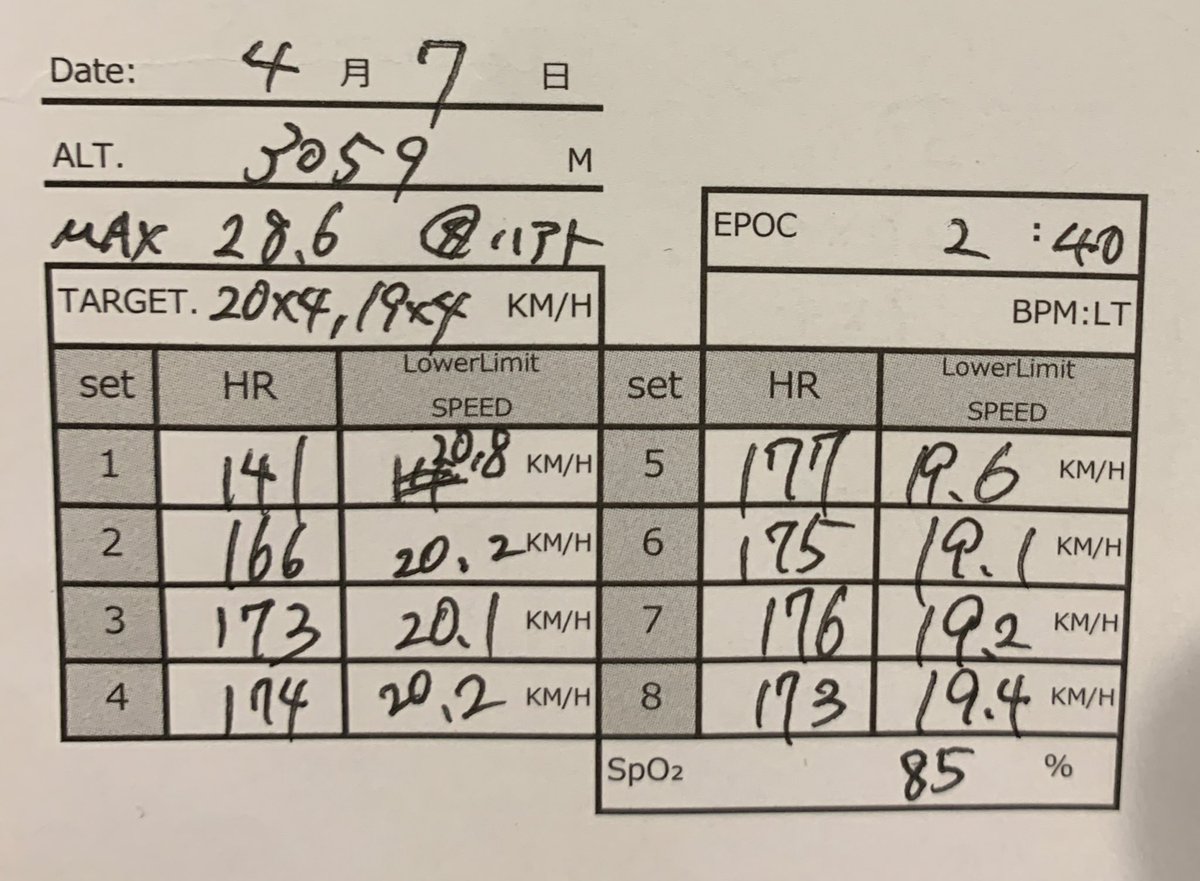 Date: 4 月 7 日
ALT. 3059 M
MAX 28.6 ⑧ ハアト
EPOC 2 : 40
TARGET. 20x4, 19x4 KM/H
BPM:LT
set HR LowerLimit SPEED set HR LowerLimit SPEED
1 141 20.8 KM/H 5 177 19.6 KM/H
2 166 20.2 KM/H 6 175 19.1 KM/H
3 173 20.1 KM/H 7 176 19.2 KM/H
4 174 20.2 KM/H 8 173 19.4 KM/H
SpO₂ 85 %